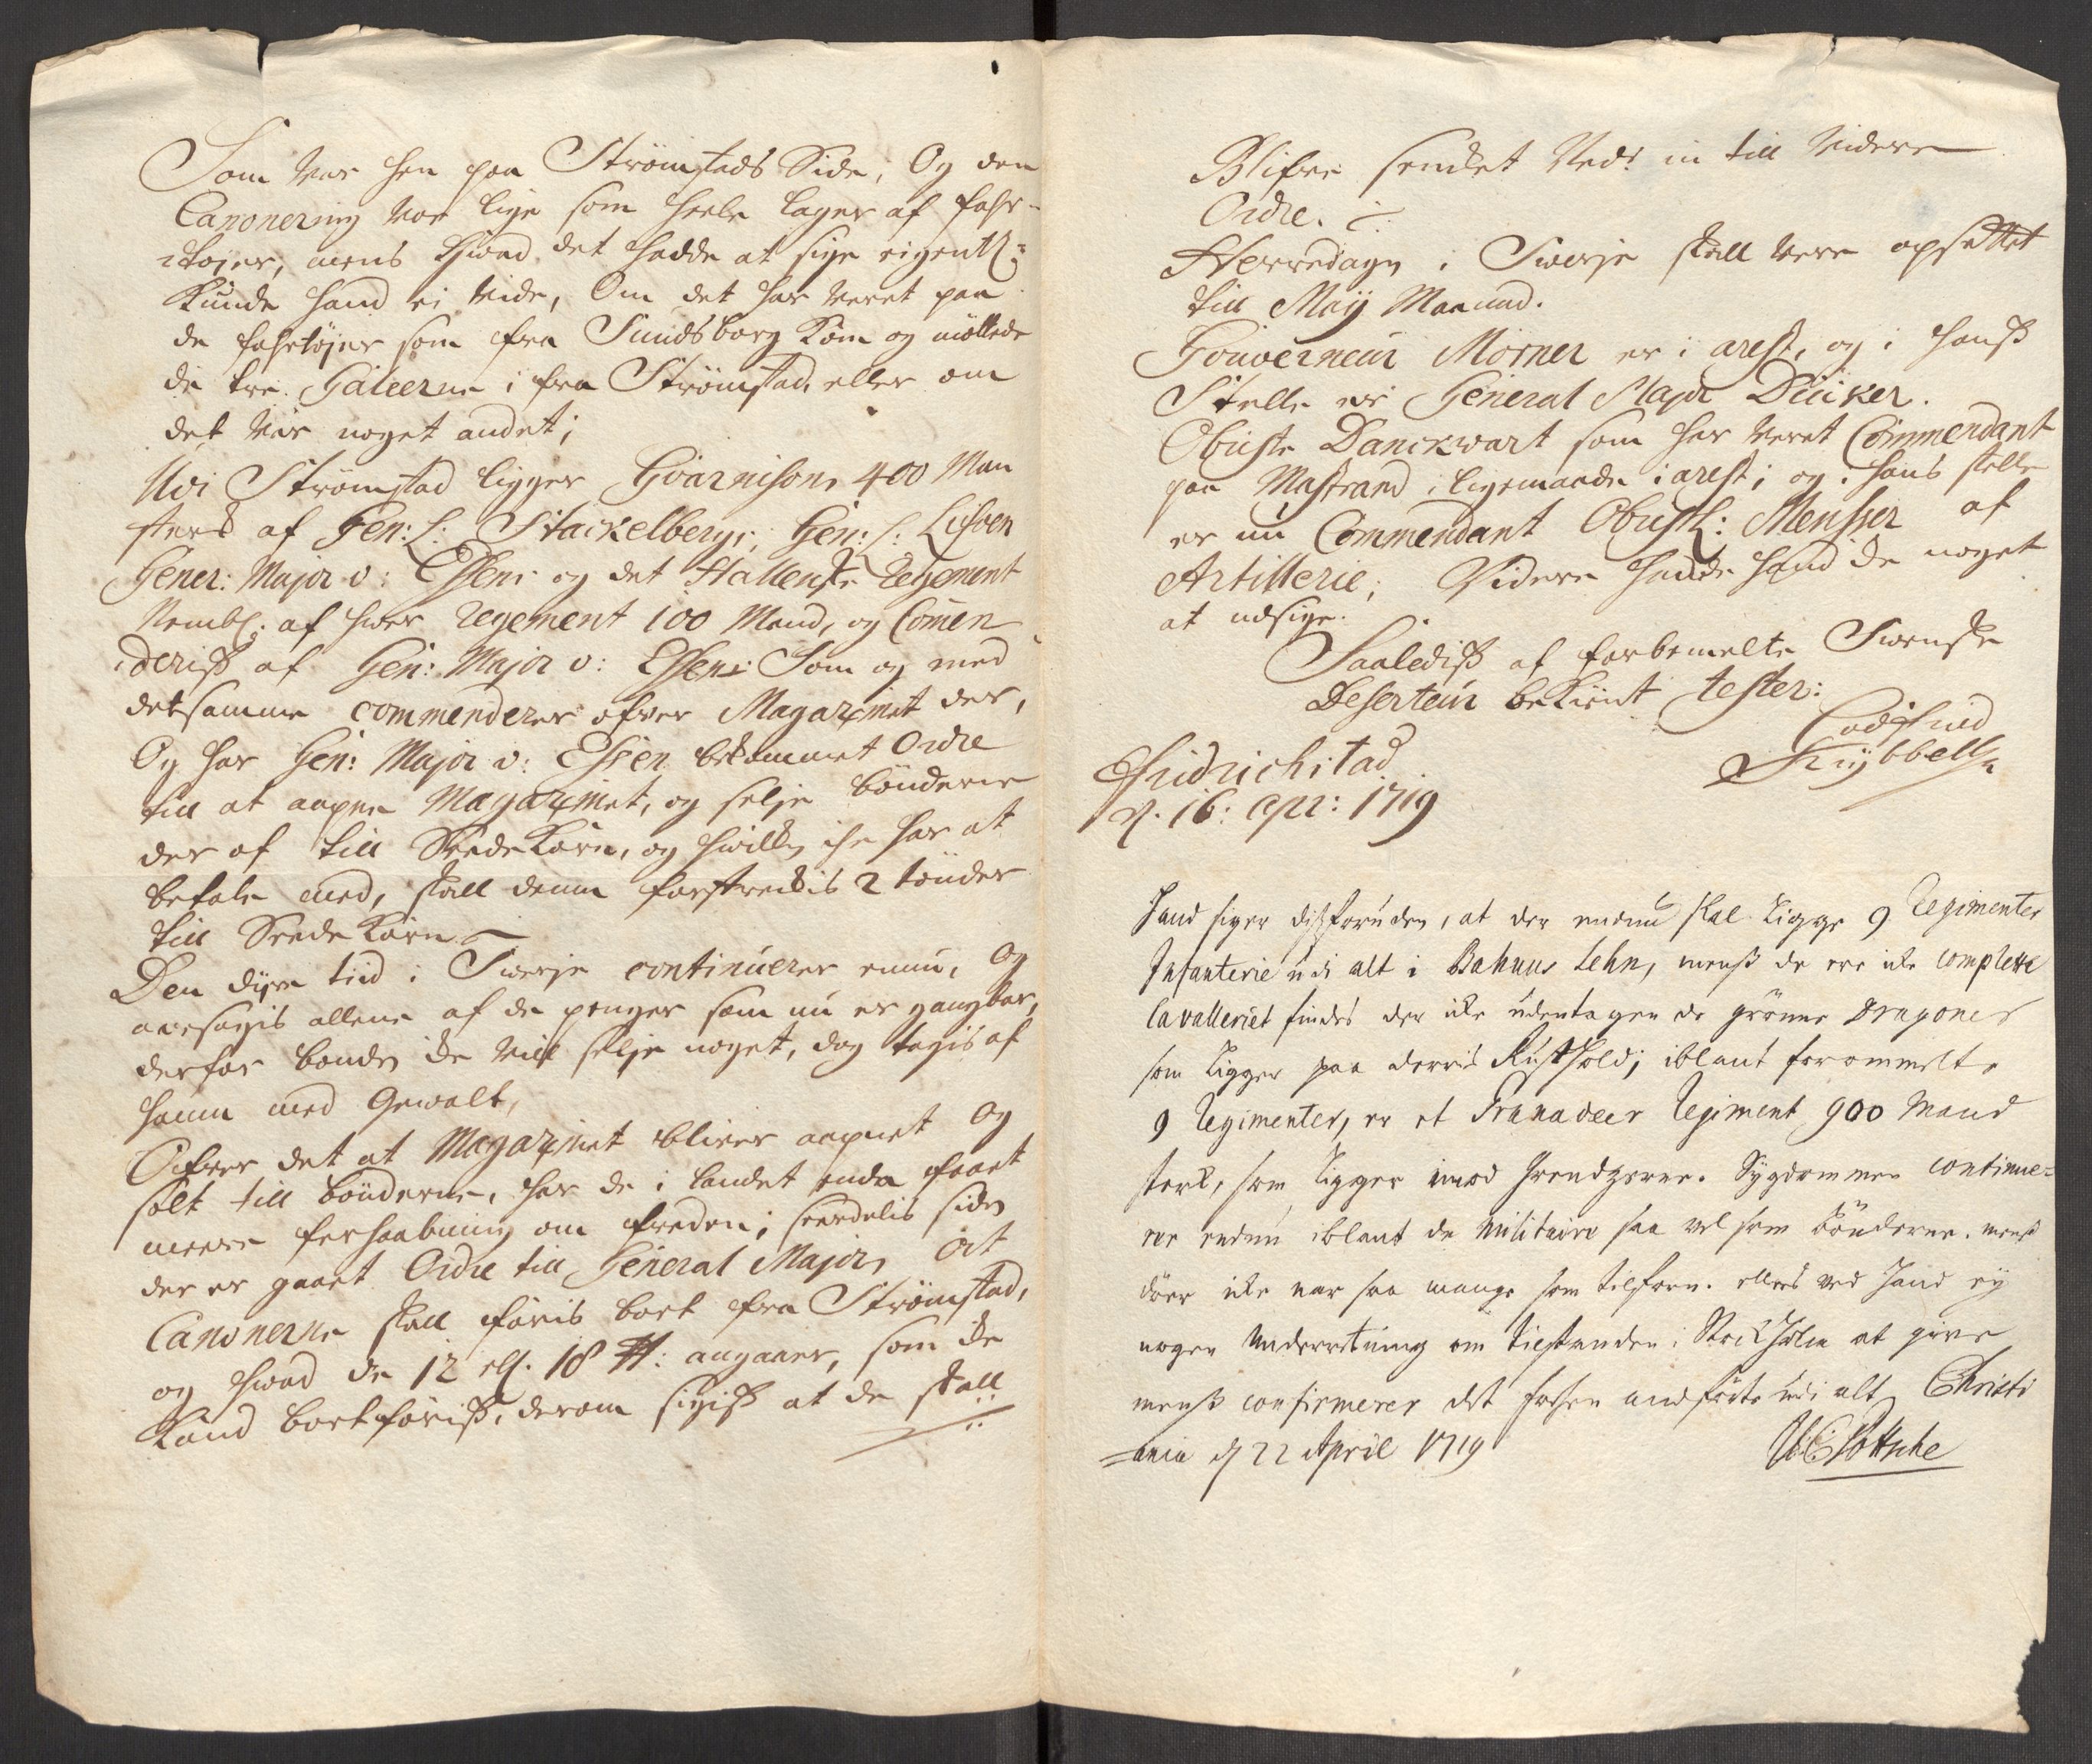 Som var hen paa Strömstads Side, Og den
Canonering var lige som heele lager af fahr-
töjer, mens Hwad det hadde at sige eigentl:
Kunde hand ei vide, Om det har veret paa
de fahrtöjer som fra Sundsborg Kom og mötte
de tre Galleerne i fra Strömstad, eller om
det var noget andet;
Udi Strömstad ligger Guarnison 400 Man
sterck af Gen: L: Stackelbergs, Gen: L: Lieven
Gener: Major v: Essens og det Hallenske Regement
Nembl: af hver Regement 100 Mand, og Comen
deriss af Gen: Major v: Essen Som og med
detsamme commenderer ofver Magazinet der,
Og har Gen: Major v: Essen bekommet Ordre
till at aapne Magazinet, og selje bönderne
der af till Seede Korn, og hvilken iche har at
betale med, skall denne forstreckis 2 tönder
till Seede Korn
Den dyre tiid i Swerje continuerer ennu, Og
aarsagis allene af de penger som nu er gangbar,
derfor bonden icke vill selje noget, dog tagis af
hannem med Gewalt,
Ofver det at Magazinet bliver aapnet Og
solt till bönderne, har de i landet enda faaet
meere forhaabning om freden; serdelis siden
der er gaaet Ordre till General Majoren at
Canonerne skall föris bort fra Strömstad,
og hwad de 12 ell. 18 ℔: angaaer, som icke
Kand bortföriss, derom sigiss at de skall
Blifve sendet Ned: in till Videre
Ordre.
Herredagen i Swerje skall vere opsattet
till Maij Maaned.
Gouverneur Mörner er i arest, og i hanss
Stelle er General Major Dücker.
Obriste Danckwart som har veret Commendant
paa Mastrand, ligemaade i arest; og i hans stelle
er nu Commendant Obristl: Mensser af
Artillerie; Videre hadde hand icke noget
at udsige.
Saalediss af forbemelte Swenske
Deserteur bekient tester:
Fridrichstad
d. 16: apr: 1719
Hand siger dissforuden, at der endnu skal Ligge 9 Regimenter
Infanterie udi alt i Bahuus Lehn, menss de ere icke complette
Cavalleriet findes der icke udentagen de grönne Dragoner
som Ligger paa derris Rusthold; iblant forommelte
9 Regimenter, er et Granadeer Regiment 900 Mand
sterck, som Ligger imod Grendzerne. Sygdommen continue=
rer endnu iblant de Militaire saa vel som Bönderne. menss
döer icke nær saa mange som tilforn. ellers ved Hand ey
nogen Underretning om tilstanden i Stockholm at give
menss confirmerer det forhen andförte udi alt, Christi
=ania d 22 April 1719